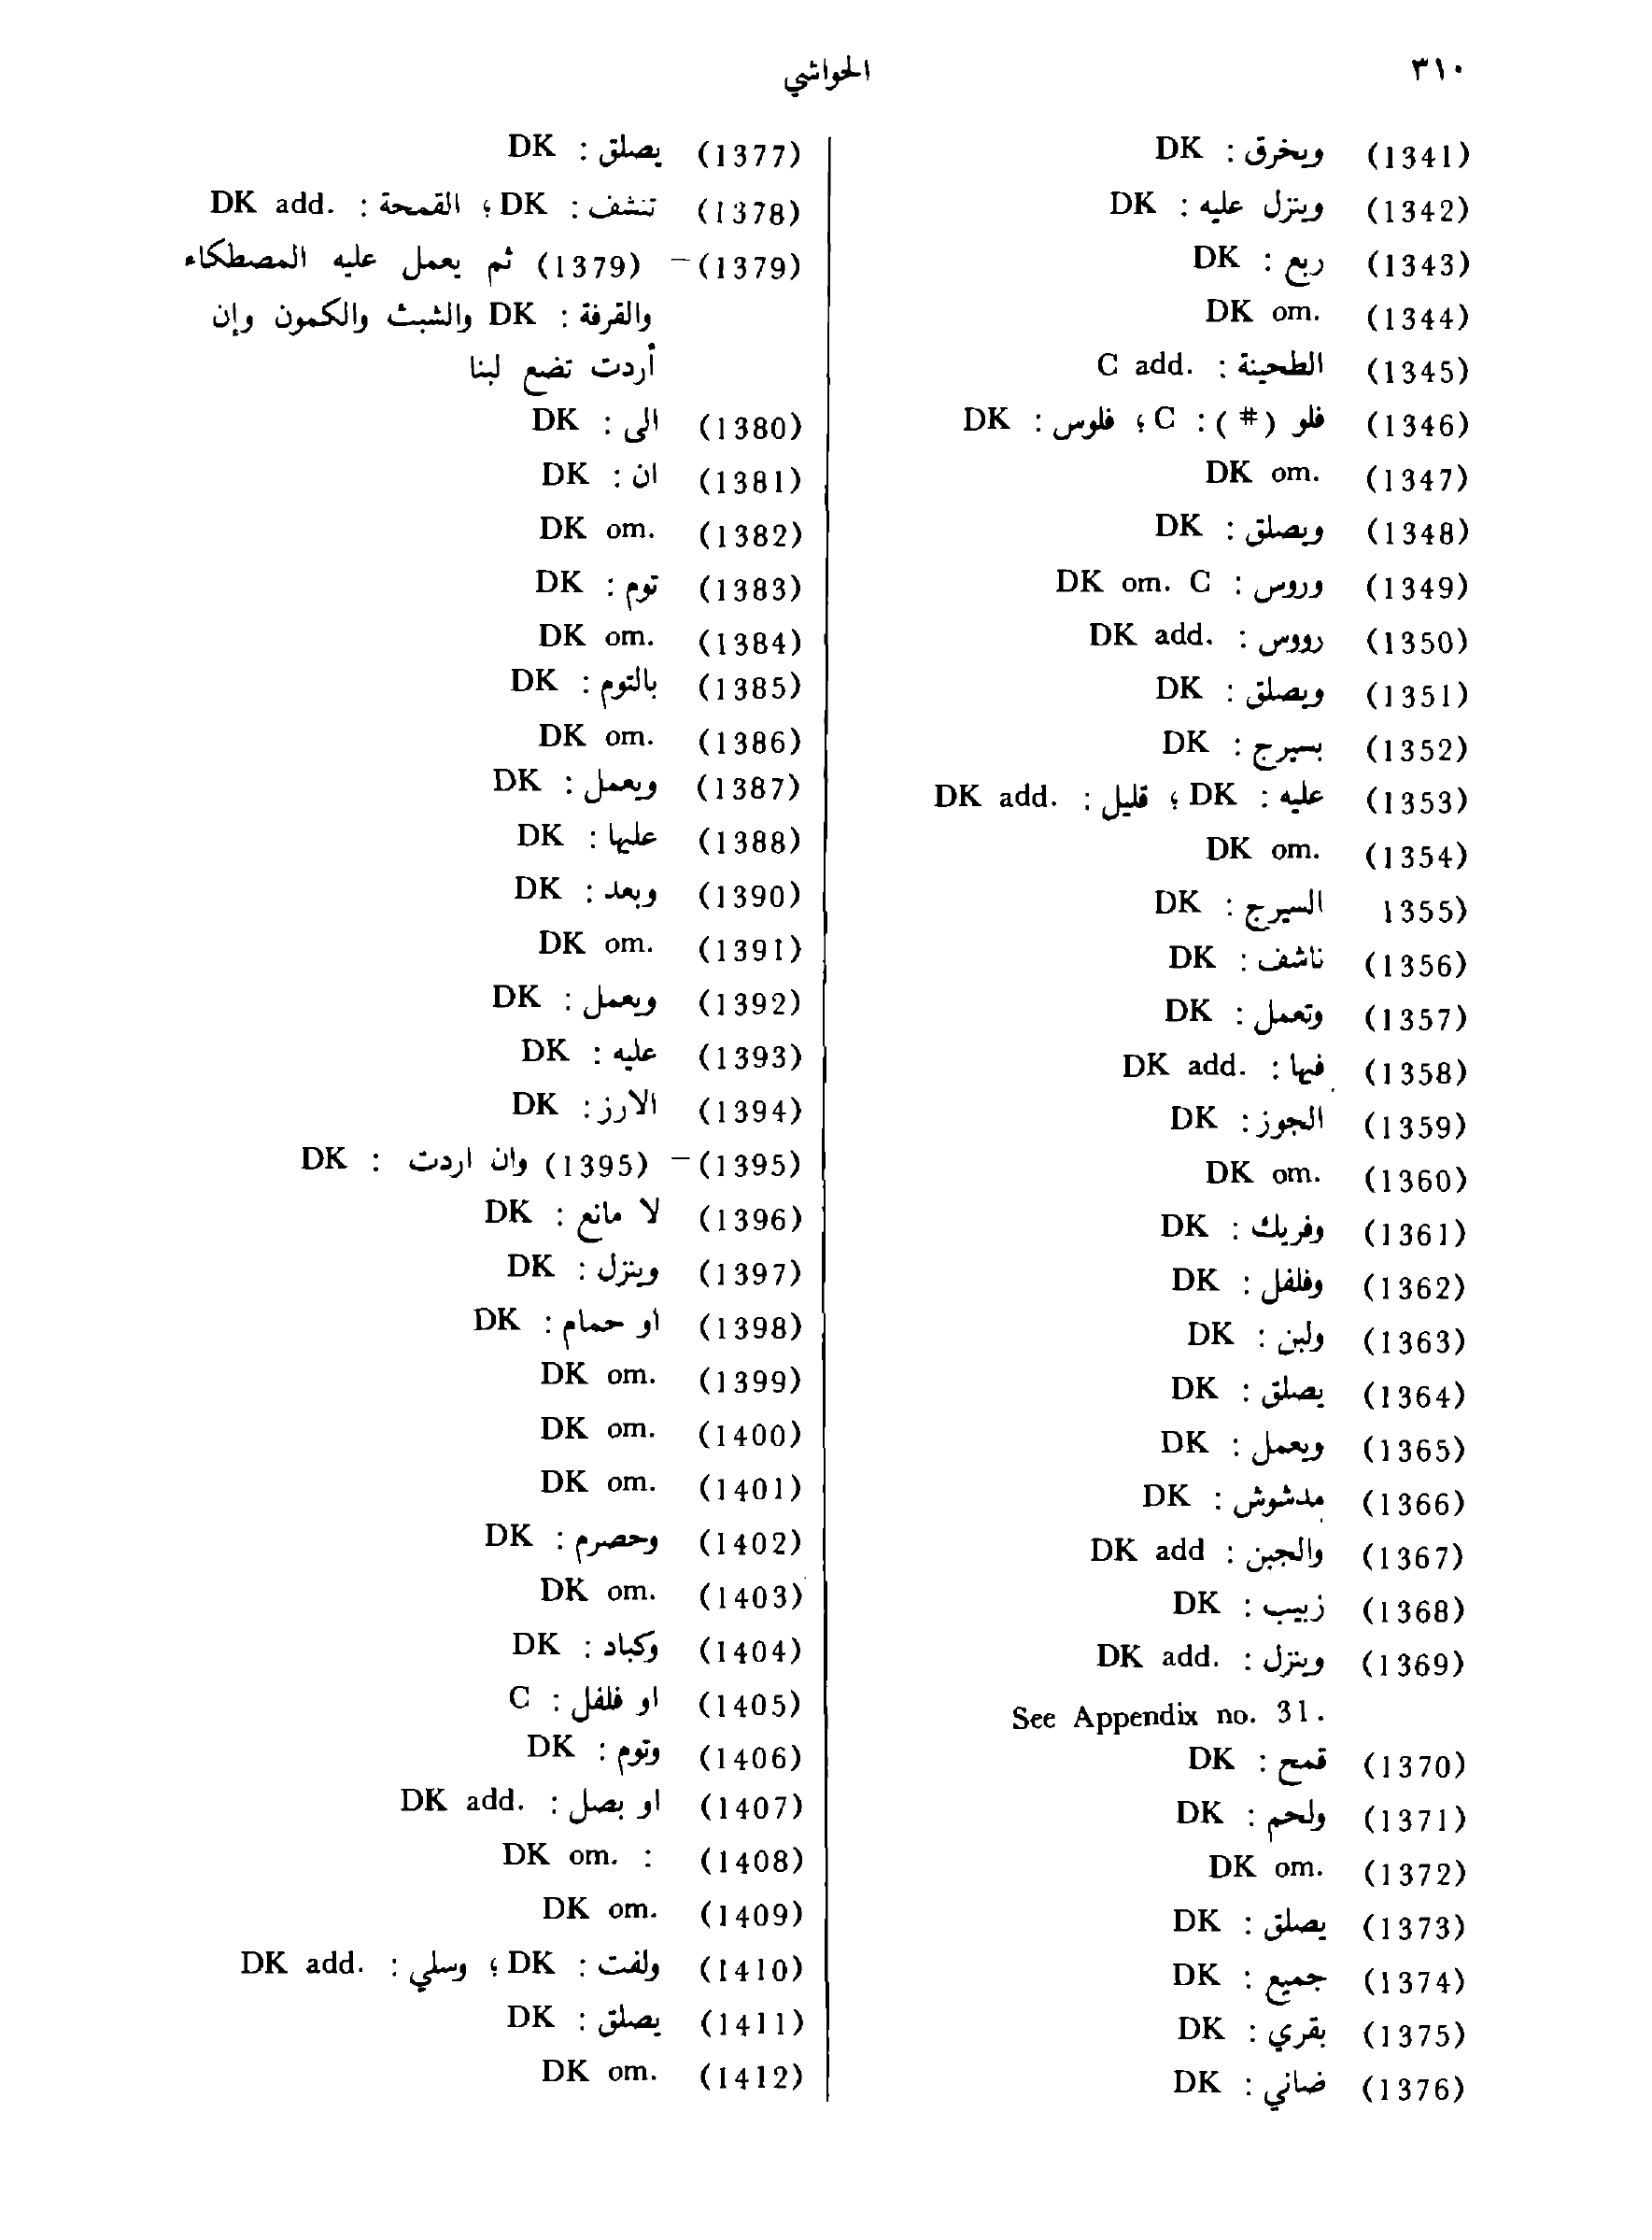 ٣١٠
الحواشي
(1341) ويخرق : DK
(1342) وينزل عليه : DK
(1343) ربع : DK
(1344) DK om.
(1345) الطحينة : C add.
(1346) فلو (#) : C ؛ فلوس : DK
(1347) DK om.
(1348) ويصلق : DK
(1349) وروس : DK om. C
(1350) رووس : DK add.
(1351) ويصلق : DK
(1352) بسيرج : DK
(1353) عليه : DK ؛ قليل : DK add.
(1354) DK om.
1355) السيرج : DK
(1356) ناشف : DK
(1357) وتعمل : DK
(1358) فيها : DK add.
(1359) الجوز : DK
(1360) DK om.
(1361) وفريك : DK
(1362) وفلفل : DK
(1363) ولبن : DK
(1364) يصلق : DK
(1365) ويعمل : DK
(1366) مدشوش : DK
(1367) والجبن : DK add
(1368) زبيب : DK
(1369) وينزل : DK add.
See Appendix no. 31.
(1370) قمح : DK
(1371) ولحم : DK
(1372) DK om.
(1373) يصلق : DK
(1374) جميع : DK
(1375) بقري : DK
(1376) ضاني : DK
(1377) يصلق : DK
(1378) تنشف : DK ؛ القمحة : DK add.
(1379)– (1379) ثم يعمل عليه المصطكاء
والقرفة : DK والشبث والكمون وإن
أردت تضع لبنا
(1380) الى : DK
(1381) ان : DK
(1382) DK om.
(1383) توم : DK
(1384) DK om.
(1385) بالتوم : DK
(1386) DK om.
(1387) ويعمل : DK
(1388) عليها : DK
(1390) وبعد : DK
(1391) DK om.
(1392) ويعمل : DK
(1393) عليه : DK
(1394) الارز : DK
(1395)– (1395) وان اردت : DK
(1396) لا مانع : DK
(1397) وينزل : DK
(1398) او حمام : DK
(1399) DK om.
(1400) DK om.
(1401) DK om.
(1402) وحصرم : DK
(1403) DK om.
(1404) وكباد : DK
(1405) او فلفل : C
(1406) وتوم : DK
(1407) او بصل : DK add.
(1408) : DK om.
(1409) DK om.
(1410) ولفت : DK ؛ وسلي : DK add.
(1411) يصلق : DK
(1412) DK om.